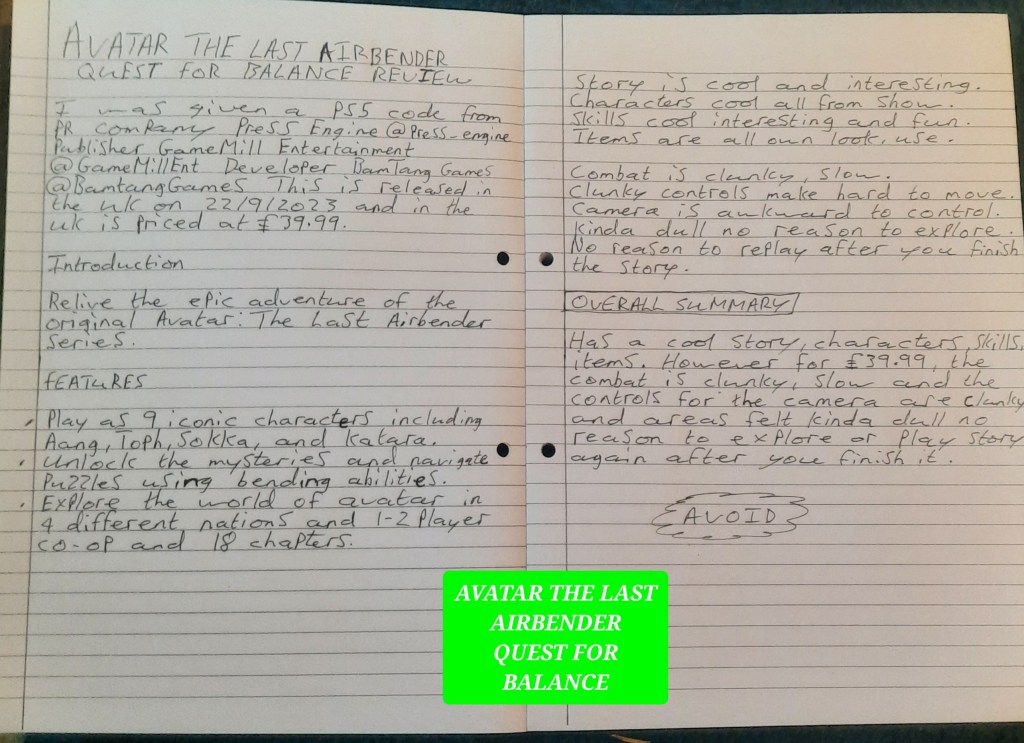 AVATAR THE LAST AIRBENDER
QUEST FOR BALANCE REVIEW
I was given a PS5 code from
PR company Press Engine @Press_engine
Publisher GameMill Entertainment
@GameMillEnt Developer BamTang Games
@BamtangGames This is released in
the uk on 22/9/2023 and in the
uk is priced at £39.99.
Introduction
Relive the epic adventure of the
original Avatar: The Last Airbender
series.
FEATURES
• Play as 9 iconic characters including
Aang, Toph, Sokka, and Katara.
• Unlock the mysteries and navigate
Puzzles using bending abilities.
• Explore the world of avatar in
4 different nations and 1-2 Player
co-op and 18 chapters.
Story is cool and interesting.
Characters cool all from show.
Skills cool interesting and fun.
Items are all own look, use.
Combat is clunky, slow.
Clunky controls make hard to move.
Camera is awkward to control.
Kinda dull no reason to explore.
No reason to replay after you finish
the story.
OVERALL SUMMARY
Has a cool story, characters, skills,
items. However for £39.99, the
combat is clunky, slow and the
controls for the camera are clunky
and areas felt kinda dull no
reason to explore or play story
again after you finish it.
AVOID
AVATAR THE LAST
AIRBENDER
QUEST FOR
BALANCE